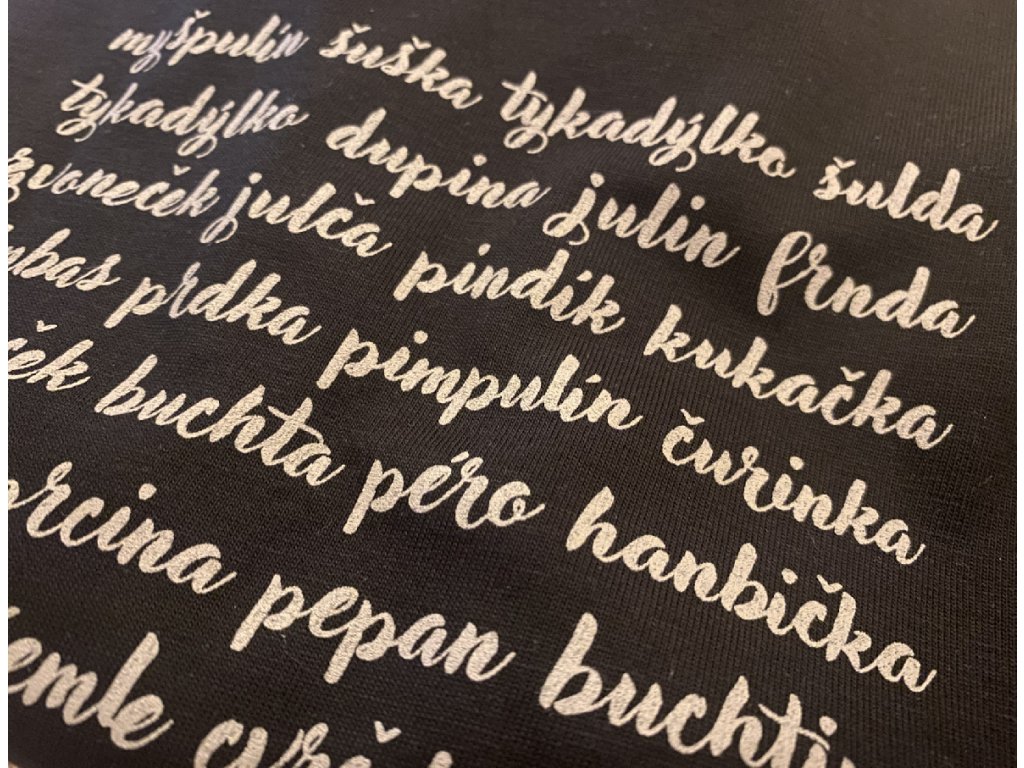 myšpulín šuška tykadýlko šulda
tykadýlko dupina julin frnda
zvoneček julča pindík kukačka
prdka pimpulín čurinka
buchta péro hanbička
pepan